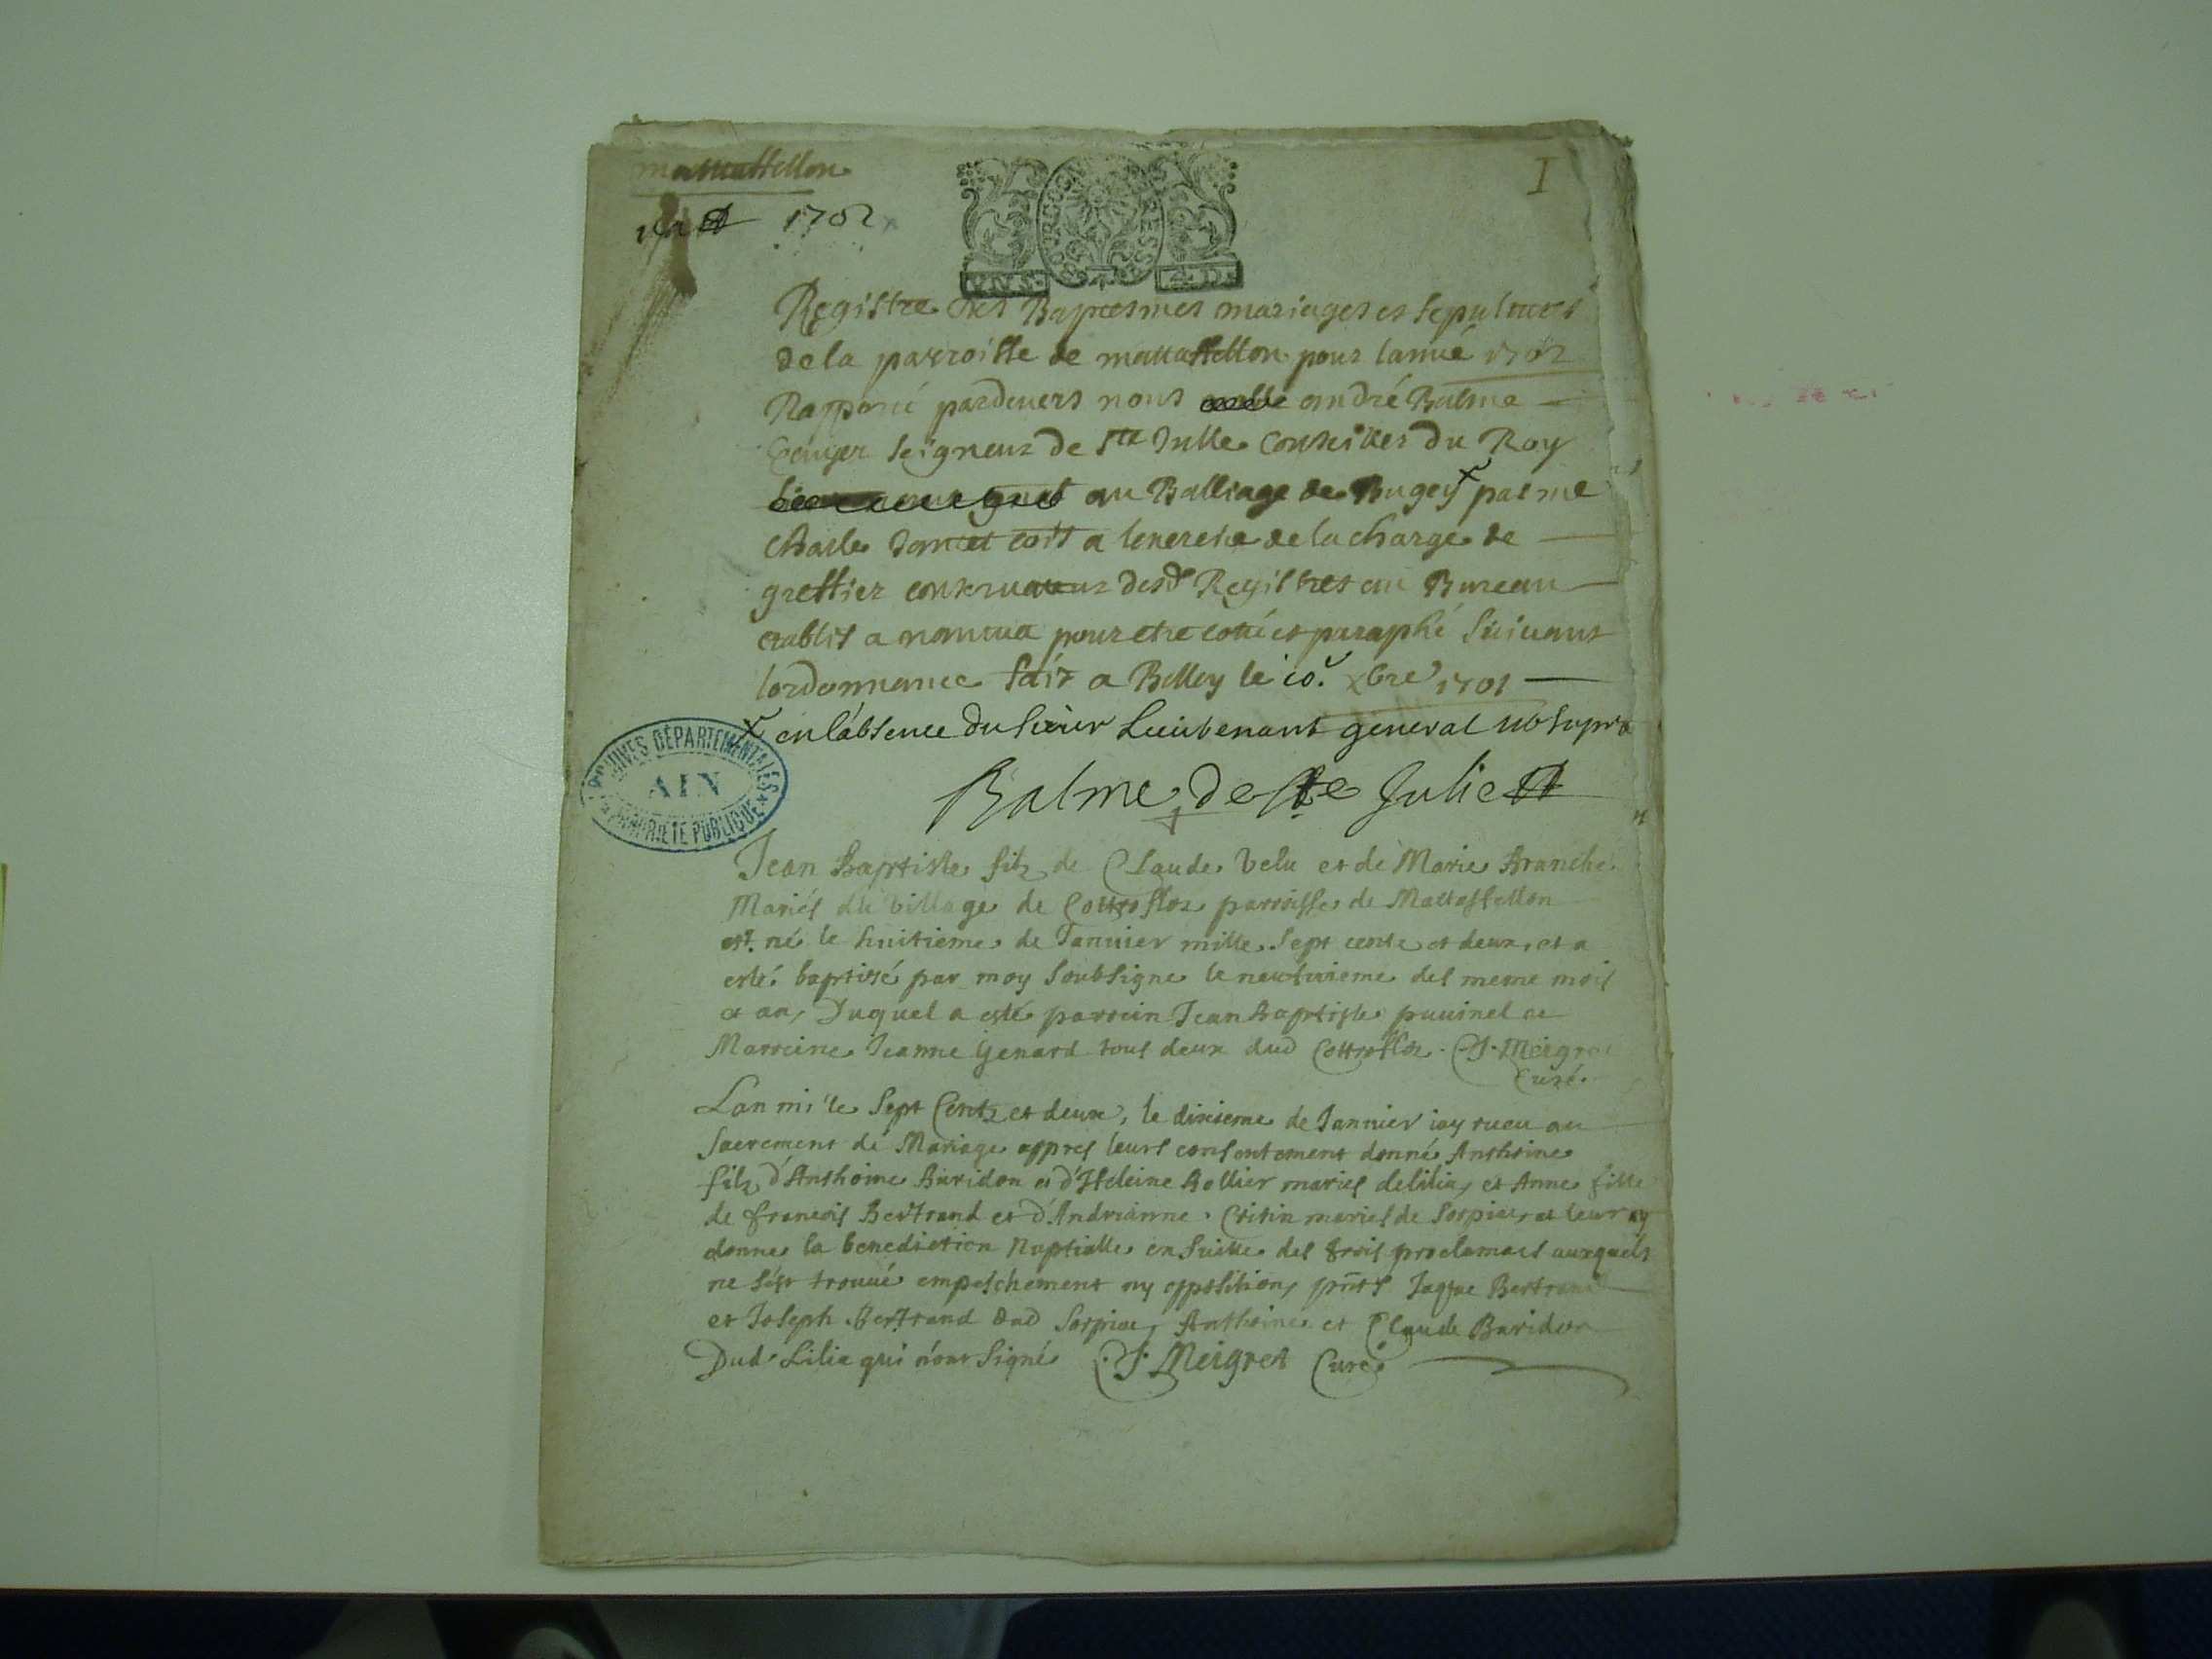 mattaffellon
1702
I
BOURGOGNE BRESSE
UN.S. 4.D.
Registre des Baptesmes mariages et sepultures
de la parroisse de mattaffellon pour lannée 1702
Rapporté pardevers nous andré Balme
Ecuyer seigneur de Ste Julle Conseiller du Roy
au Balliage de Bugey par me
Charle a lexercice de la charge de
greffier conservateur desd Registres au Bureau
etablis a nantua pour etre cotté et paraphé suivant
lordonnance fait a Belley le 10. xbre 1701
en labsence du sieur Lieutenant general ut supra
Balme de Ste Julie
ARCHIVES DÉPARTEMENTALES
AIN
PROPRIÉTÉ PUBLIQUE
Jean Baptiste filz de Claude Velu et de Marie Branche
Mariés du village de Cottrofloz parroisse de Mattaffellon
est né le huitieme de Janvier mille sept centz et deux, et a
esté baptisé par moy soubsigne le neufvieme des meme mois
et an, Duquel a esté parrein Jean Baptiste puvinel et
Marreine Jeanne Genard tous deux dud Cottrofloz. J. Meigret
Curé.
Lan mille sept Centz et deux, le dixieme de Janvier iay receu au
Sacrement de Mariage appres leurs consentement donné Anthoine
filz d'Anthoine Buridon et d'Heleine Rollier mariés de lilia, et Anne fille
de francois Bertrand et d'Andrianne mariés de Sorpiat, et leur ay
donne la benediction Nuptialle en suitte des trois proclamats auxquels
ne sest trouué empeschement ny opposition, pnts Jaque Bertrand
et Joseph Bertrand dud Sorpiat, Anthoine et Claude Buridon
Dud. Lilia qui n'ont signé J. Meigret Curé